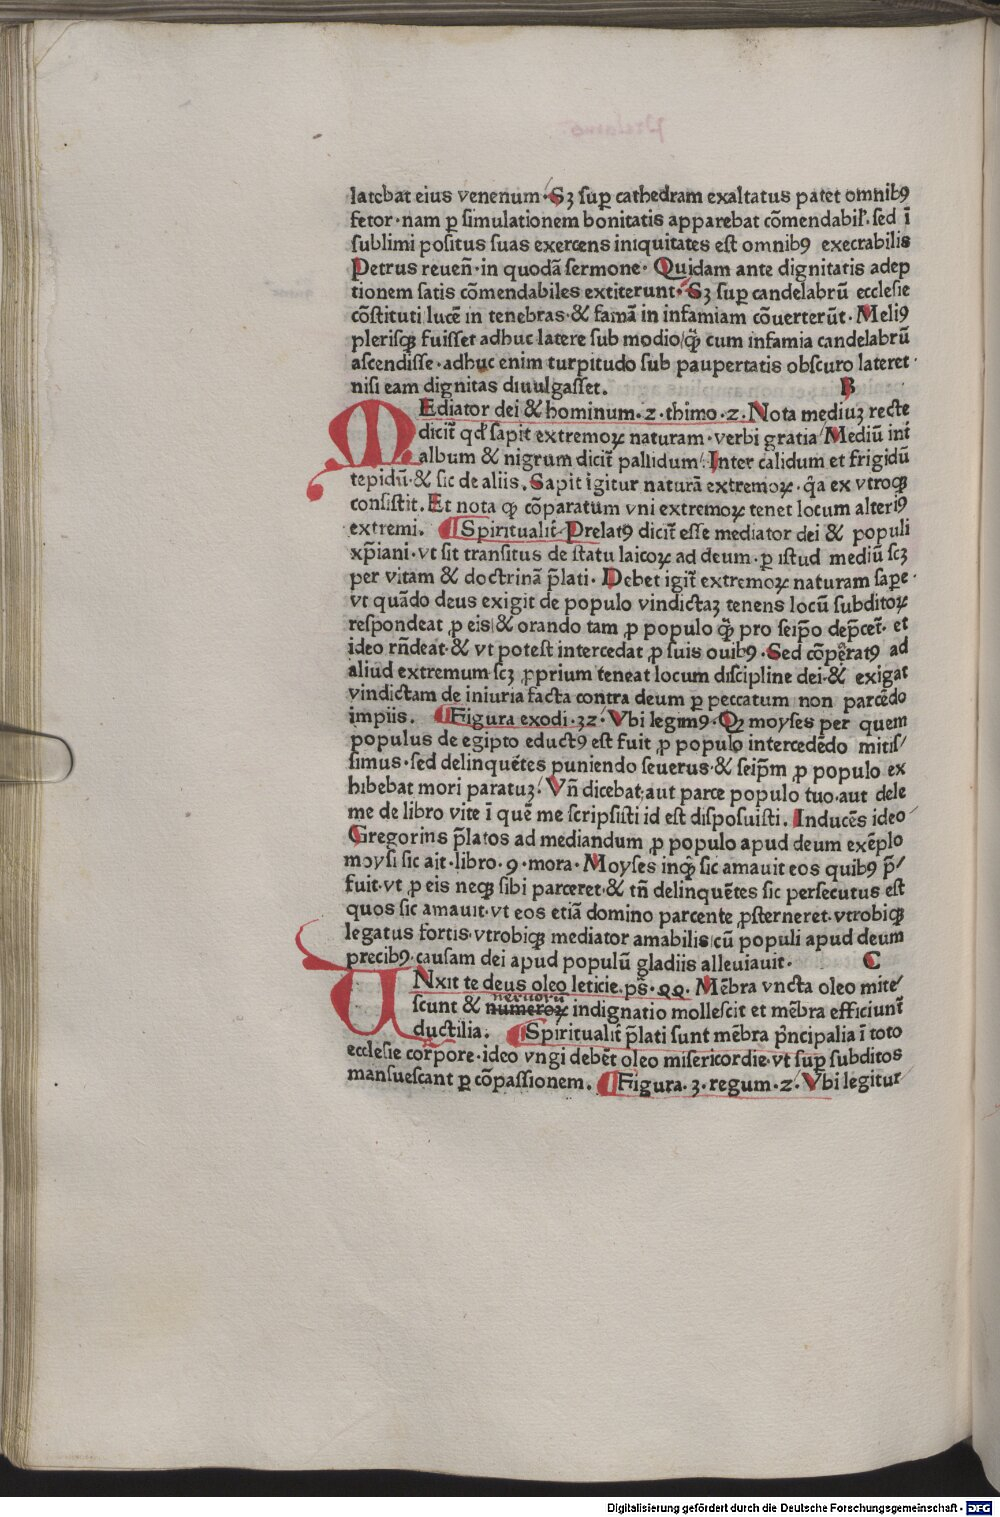 latebat eius venenum· Sꝫ suꝑ cathedram exaltatus patet omnibꝰ
fetor· nam ꝑ simulationem bonitatis apparebat cōmendabil'. sed ī
sublimi positus suas exercens iniquitates est omnibꝰ execrabilis
Petrus reueñ· in quodā sermone· Quidam ante dignitatis adep
tionem satis cōmendabiles extiterunt· Sꝫ suꝑ candelabrū ecclesie
cōstituti lucē in tenebras· & famā in infamiam cōuerterūt· Meliꝰ
plerisqꝫ fuisset adhuc latere sub modio/ qȝ̄ cum infamia candelabrū
ascendisse· adhuc enim turpitudo sub paupertatis obscuro lateret·
nisi eam dignitas diuulgasset. B
MEdiator dei & hominum· 2· thimo· 2· Nota mediuꝫ recte
dicit̄ qd' sapit extremoꝝ naturam· verbi gratia/ Mediū int̄
album & nigrum dicit̄ pallidum/ Inter calidum et frigidū
tepidū· & sic de aliis. Sapit igitur naturā extremoꝝ· q̄a ex vtroqꝫ
consistit. Et nota ꝙ cōparatum vni extremoꝝ tenet locum alteriꝰ
extremi. ¶ Spiritualit̄· Prelatꝰ dicit̄ esse mediator dei & populi
xp̄iani· vt sit transitus de statu laicoꝝ ad deum· ꝑ istud mediū scꝫ
per vitam & doctrinā p̄lati· Debet igit̄ extremoꝝ naturam saꝑe·
vt quādo deus exigit de populo vindictaꝫ tenens locū subditoꝝ
respondeat ꝓ eis/ & orando tam ꝓ populo qȝ̄ pro seip̄o dep̄cet̄· et
ideo rñdeat· & vt potest intercedat ꝓ suis ouibꝰ· Sed cōperatꝰ ad
aliud extremum scꝫ ꝓprium teneat locum discipline dei· & exigat
vindictam de iniuria facta contra deum ꝑ peccatum non parcēdo
impiis. ¶ Figura exodi· 32· Vbi legimꝰ· Qꝫ moyses per quem
populus de egipto eductꝰ est fuit ꝓ populo intercedēdo mitis/
simus· sed delinquētes puniendo seuerus· & seip̄m ꝓ populo ex
hibebat mori paratuꝫ/ Vñ dicebat· aut parce populo tuo· aut dele
me de libro vite ī quē me scripsisti id est disposuisti. Inducēs ideo
Gregorius p̄latos ad mediandum ꝓ populo apud deum exēplo
moysi sic ait· libro· 9· mora· Moyses inqȝ̄ sic amauit eos quibꝰ p̄/
fuit· vt ꝓ eis neqꝫ sibi parceret· & tñ delinquētes sic persecutus est
quos sic amauit· vt eos etiā domino parcente ꝓsterneret· vtrobiqꝫ
legatus fortis· vtrobiqꝫ mediator amabilis/ cū populi apud deum
precibꝰ· causam dei apud populū gladiis alleuiauit· C
UNxit te deus oleo leticie. ps̄· 44. Mēbra vncta oleo mite/
nervorū
scunt & numeroꝝ indignatio mollescit et mēbra efficiunt̄
ductilia. ¶ Spiritualit̄ p̄lati sunt mēbra p̄ncipalia ī toto
ecclesie corꝑore· ideo vngi debēt oleo misericordie· vt suꝑ subditos
mansuescant ꝑ cōpassionem. ¶ Figura· 3· regum· 2· Vbi legitur
Digitalisierung gefördert durch die Deutsche Forschungsgemeinschaft - DFG